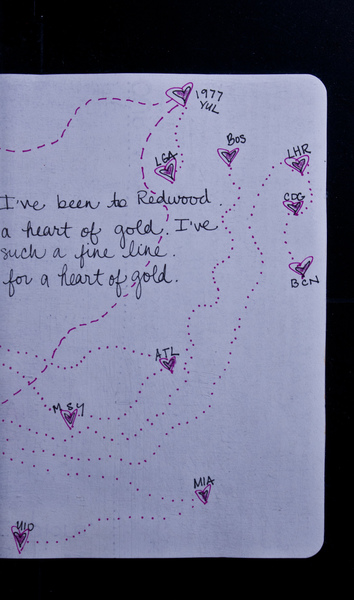 1977
YUL
BOS
LGA
LHR
CDG
I've been to Redwood
a heart of gold. I've
such a fine line.
for a heart of gold.
BCN
ATL
MSY
MIA